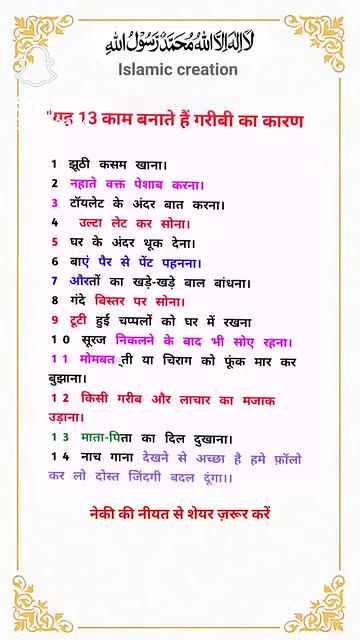 لَا إِلٰهَ إِلَّا اللهُ مُحَمَّدٌ رَسُولُ اللهِ
Islamic creation
"यह 13 काम बनाते हैं गरीबी का कारण
1 झूठी कसम खाना।
2 नहाते वक्त पेशाब करना।
3 टॉयलेट के अंदर बात करना।
4 उल्टा लेट कर सोना।
5 घर के अंदर थूक देना।
6 बाएं पैर से पेंट पहनना।
7 औरतों का खड़े-खड़े बाल बांधना।
8 गंदे बिस्तर पर सोना।
9 टूटी हुई चप्पलों को घर में रखना
10 सूरज निकलने के बाद भी सोए रहना।
11 मोमबत्ती या चिराग को फूंक मार कर
बुझाना।
12 किसी गरीब और लाचार का मजाक
उड़ाना।
13 माता-पिता का दिल दुखाना।
14 नाच गाना देखने से अच्छा है हमे फ़ॉलो
कर लो दोस्त जिंदगी बदल दूंगा।।
नेकी की नीयत से शेयर ज़रूर करें